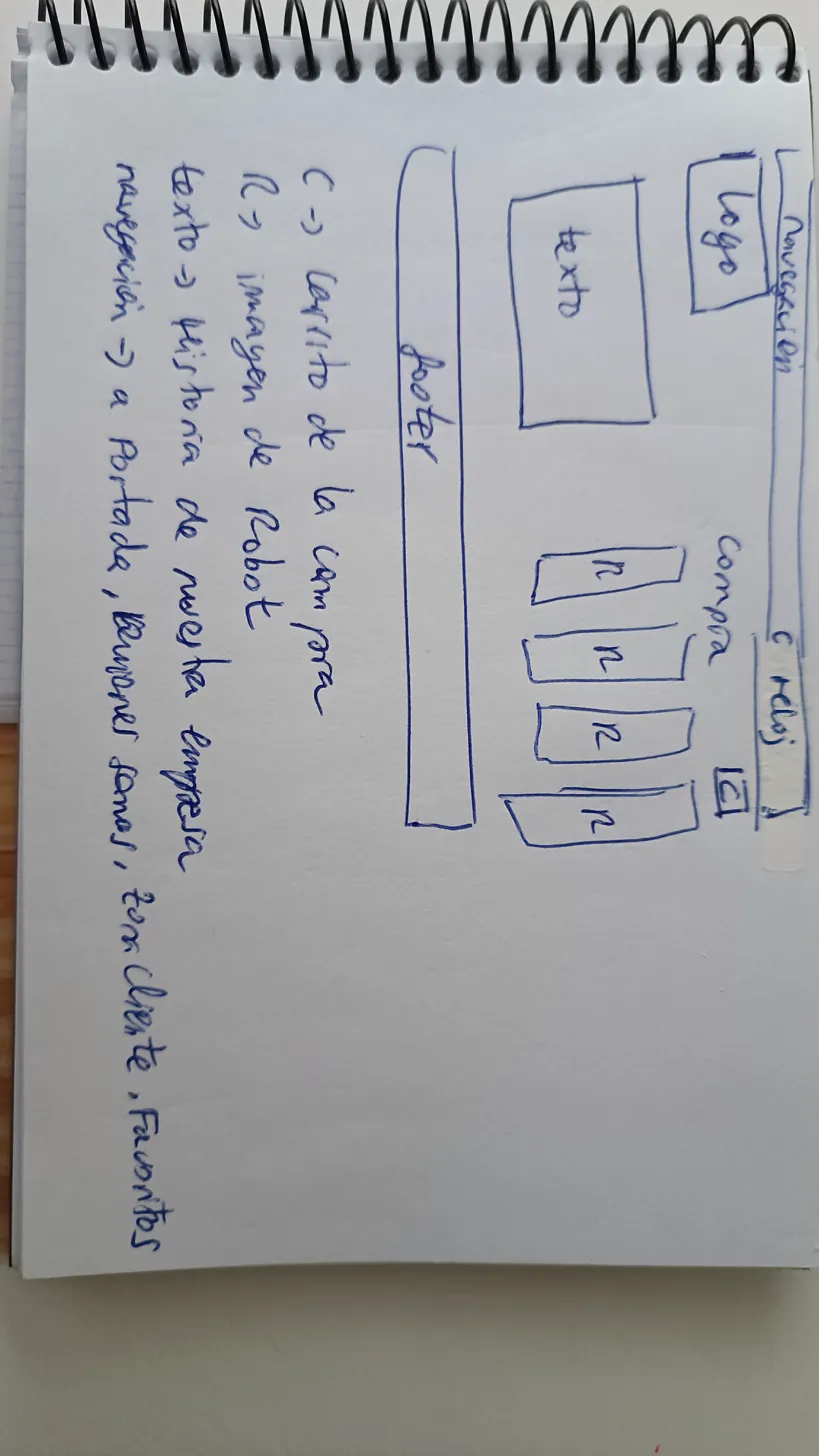 navegación C reloj
Logo Compra C
texto R R R R
footer
C -> Carrito de la compra
R -> imagen de Robot
texto -> Historia de nuestra empresa
navegación -> a Portada, Quienes somos, Zona Cliente, Favoritos